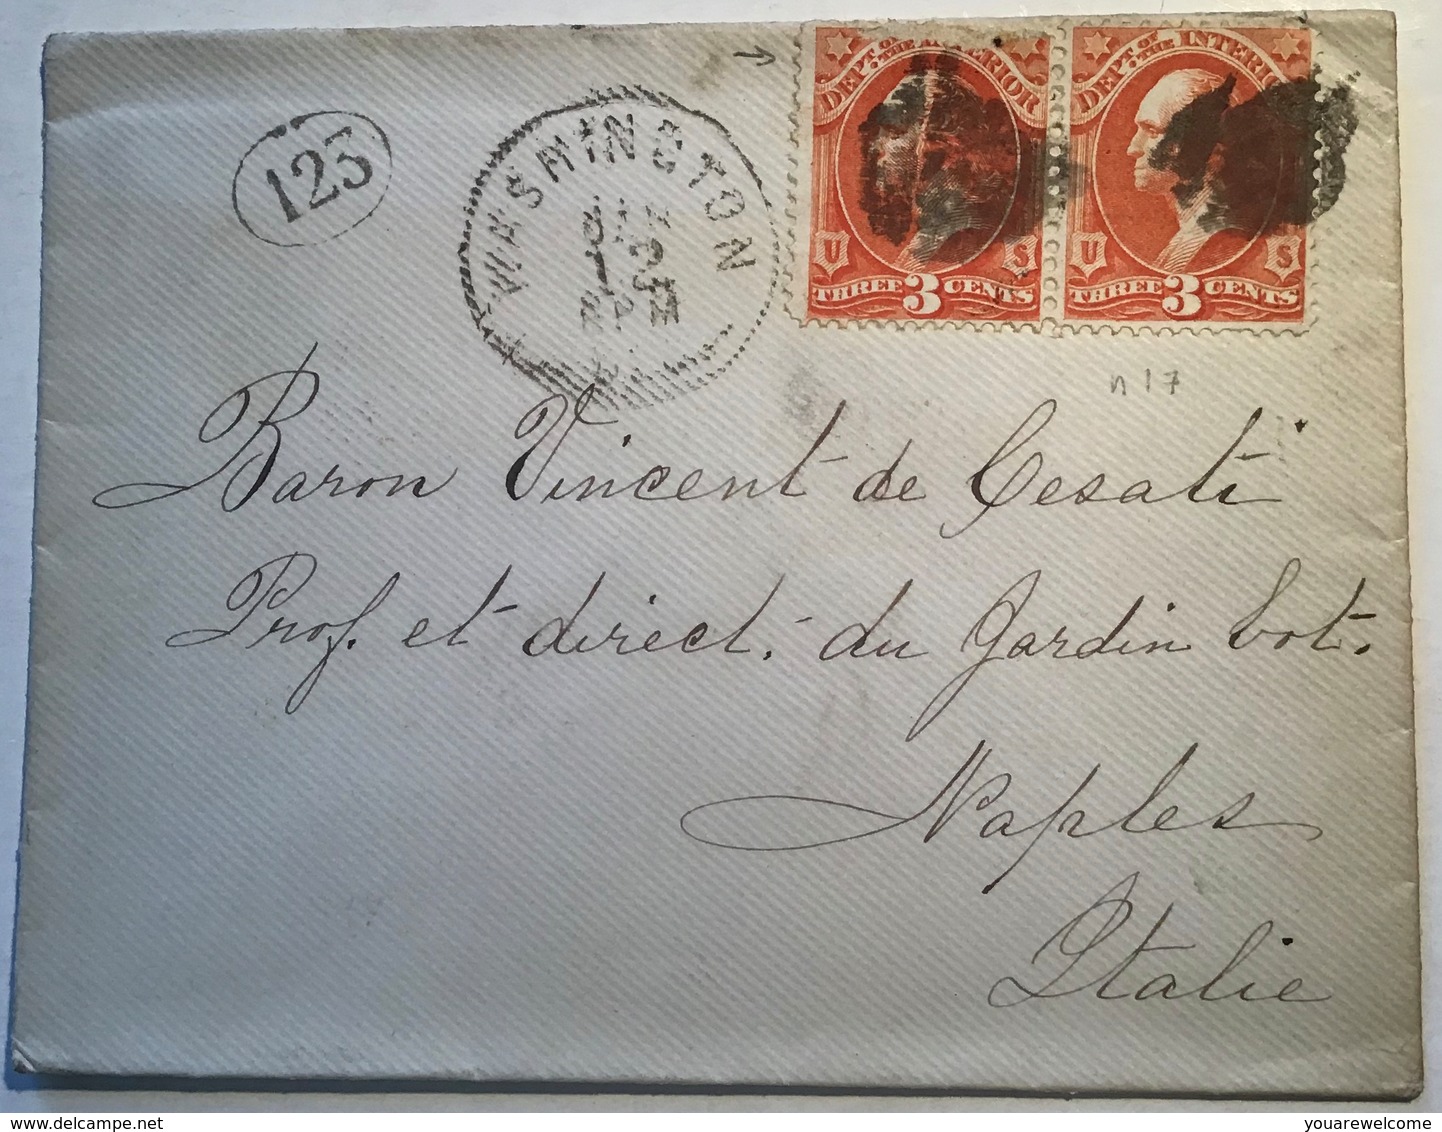 125
WASHINGTON
DEPT. OF THE INTERIOR
U S
THREE 3 CENTS
DEPT. OF THE INTERIOR
U S
THREE 3 CENTS
n 17
Baron Vincent de Cesati
Prof. et direct. du Jardin bot.
Naples
Italie
youarewelcome